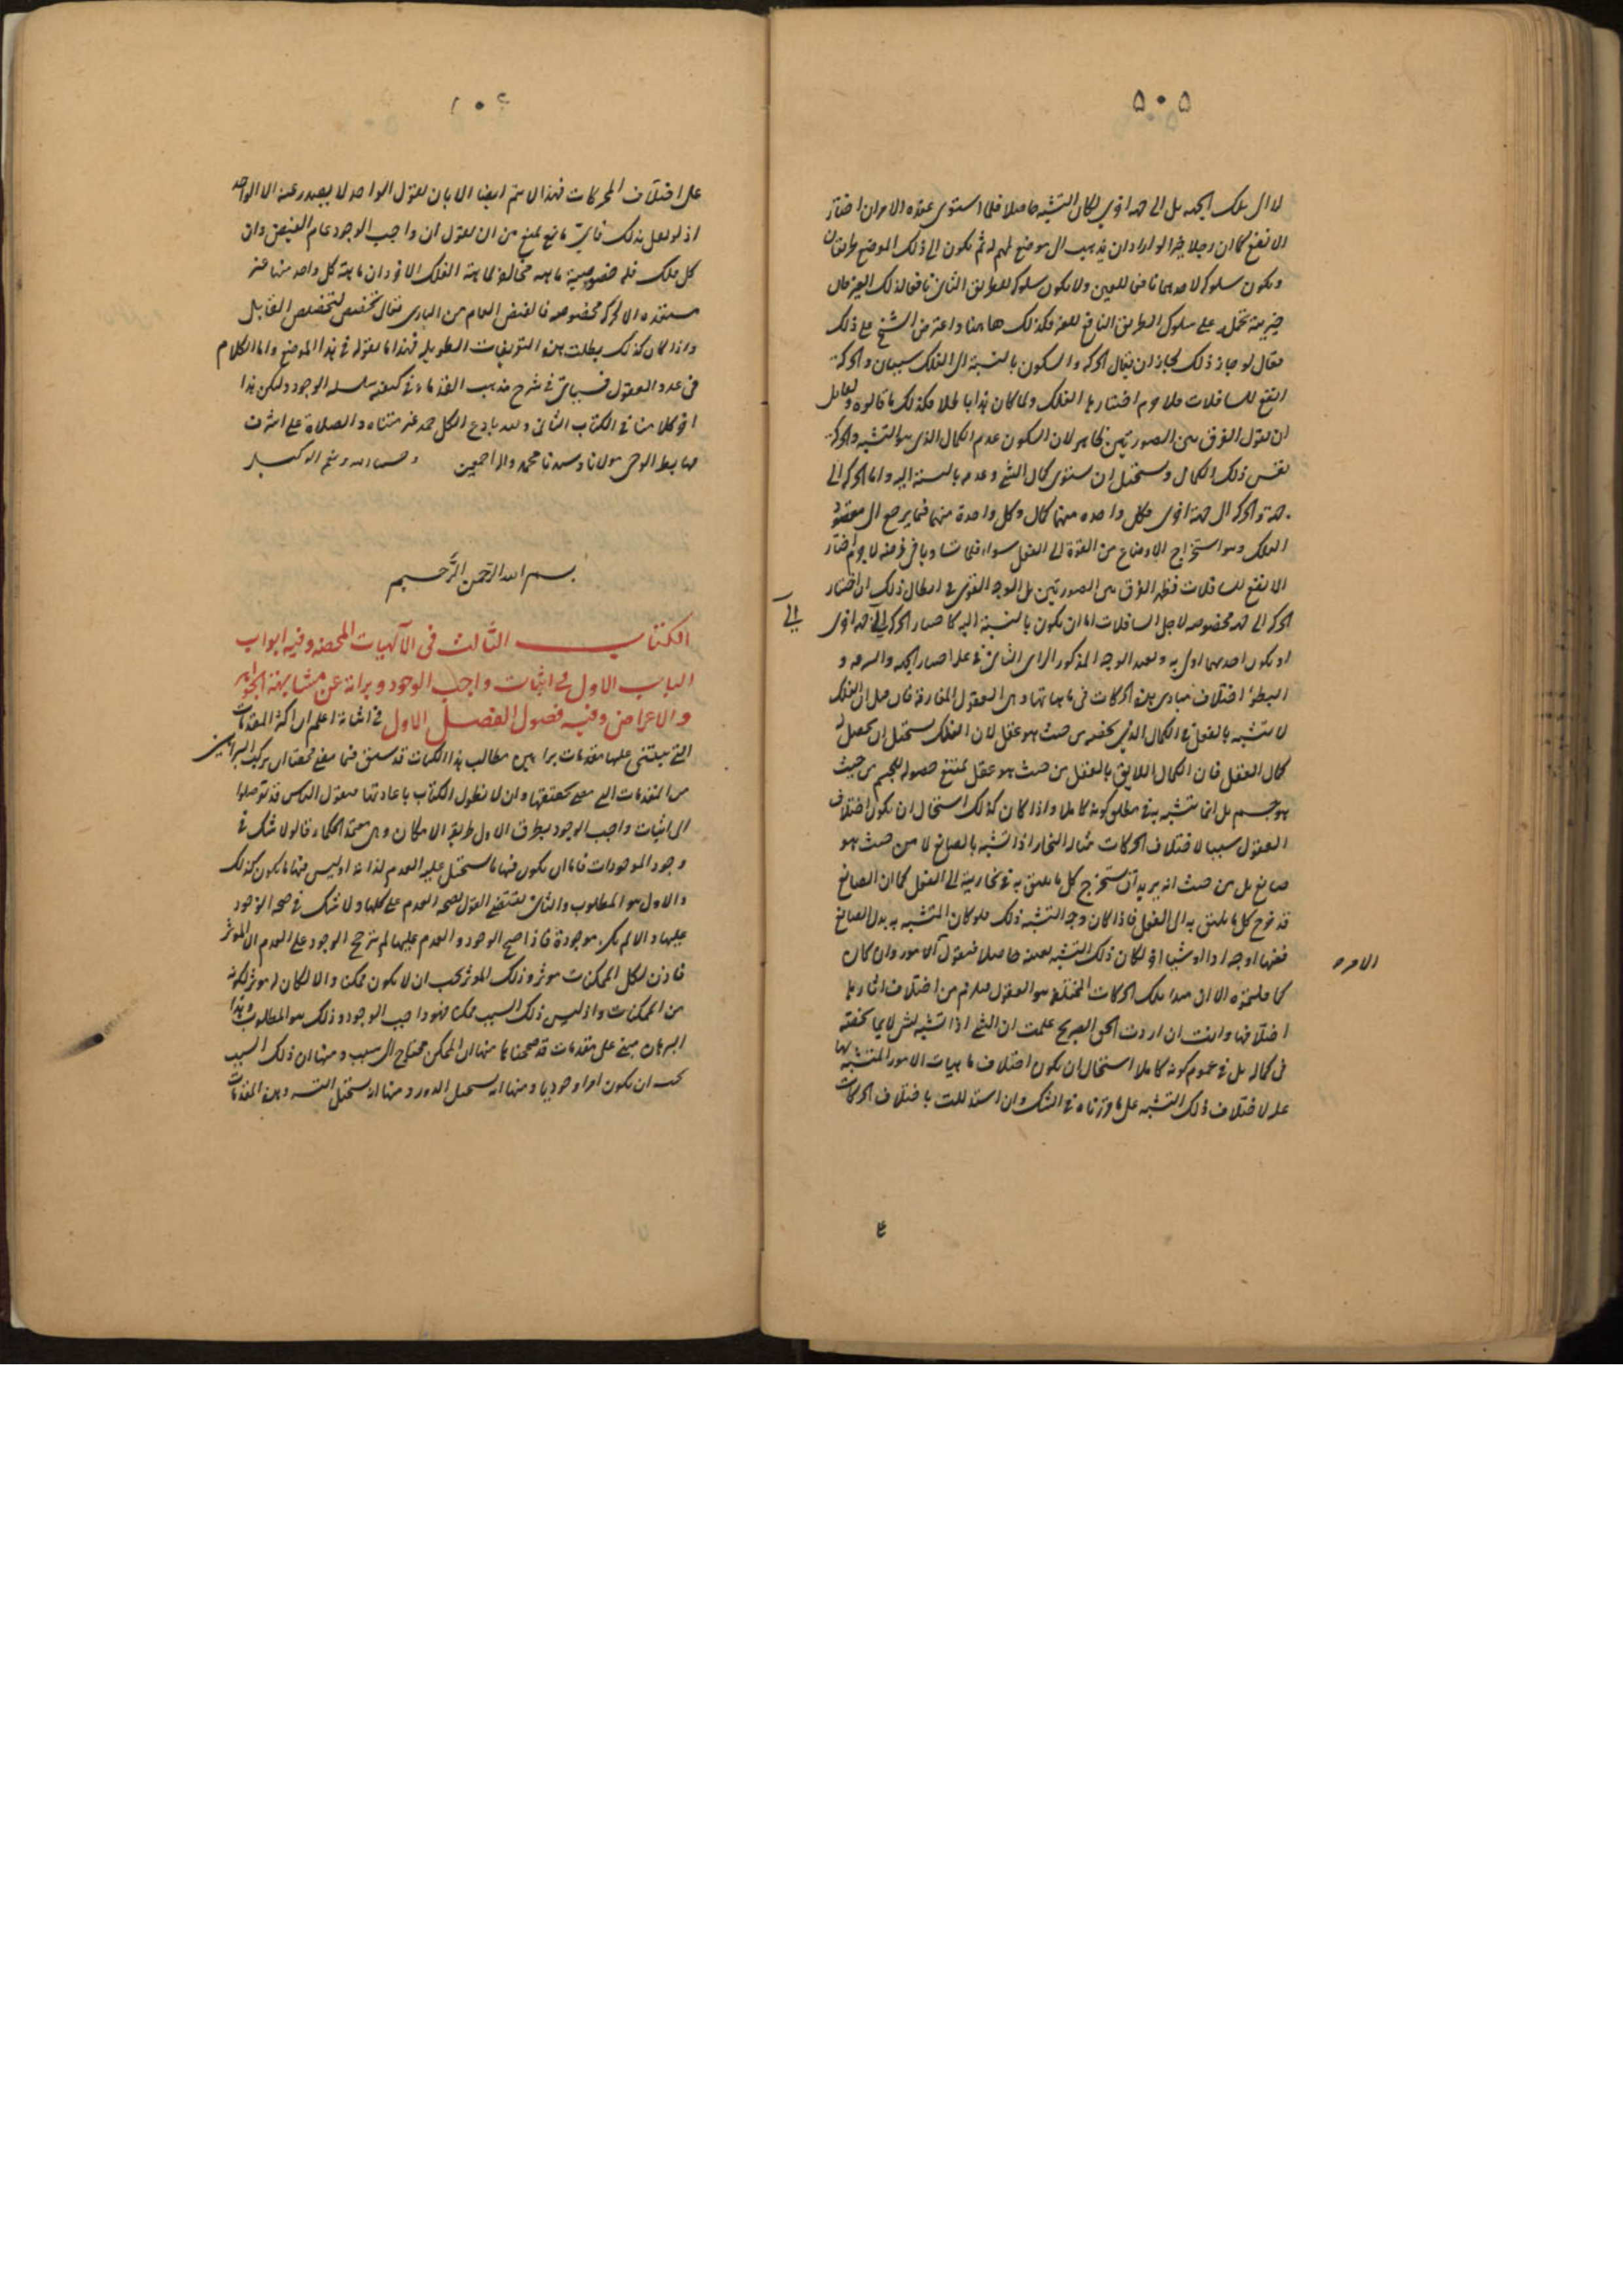 ٥٠٥
لا الى تلك الجهة بل الى جهة اخرى لكان التشبه حاصلا فلما استوى عنده الامران اختار
الانفع كما ان رجلا خيرا لو اراد ان يذهب الى موضع لمهم له ثم يكون الى ذلك الموضع طريقان
ويكون سلوكه لاحدهما نافعا للغير ولا يكون سلوكه للطريق الثانى نافعا لذلك الغير فان
خيريته تحمله على سلوك الطريق النافع للغير فكذلك هاهنا واعترض الشيخ على ذلك
فقال لو جاز ذلك لجاز ان يقال الحركة والسكون بالنسبة الى الفلك سيان والحركة
انفع للسافلات فلا جرم اختارها الفلك ولما كان هذا باطلا فكذلك ما قالوه ولقائل
ان يقول الفرق بين الصورتين ظاهر لان السكون عدم الكمال الذى هو التشبه والحركة
نفس ذلك الكمال ويستحيل ان يستوى كمال الشئ وعدمه بالنسبة اليه واما الحركة الى
جهة والحركة الى جهة اخرى فكل واحدة منهما كمال وكل واحدة منهما فيما يرجع الى مقصود
الفلك وهو استخراج الاوضاع من القوة الى الفعل سواء فلما تساويا فى غرضه لا جرم اختار
الانفع للسافلات فظهر الفرق بين الصورتين بل الوجه القوى فى ابطال ذلك ان اختيار
الحركة الى جهة مخصوصة لاجل السافلات اما ان يكون بالنسبة اليه كاختيار الحركة الى جهة اخرى
الى
او يكون احدهما اولى به ويعود الوجه المذكور الراى الثانى فى علة اختيار الجهة والسرعة و
البطؤ اختلاف مبادى هذه الحركات فى ماهياتها وهى العقول المفارقة فان قيل ان الفلك
لا يتشبه بالعقل فى الكمال الذى يخصه من حيث هو عقل لان الفلك يستحيل ان يحصل له
كمال العقل فان الكمال اللايق بالعقل من حيث هو عقل يمتنع حصوله للجسم من حيث
هو جسم بل انما يتشبه به فى مطلق كونه كاملا واذا كان كذلك استحال ان يكون اختلاف
العقول سببا لاختلاف الحركات مثاله النجار اذا تشبه بالصايغ لا من حيث هو
صايغ بل من حيث انه يريد ان يستخرج كل ما يليق به فى نجاريته الى الفعل كما ان الصايغ
قد خرج كل ما يليق به الى الفعل فاذا كان وجه التشبه ذلك فلو كان المتشبه به بدل الصايغ
فقيها او حدادا او شيئا اخر لكان ذلك التشبه بعينه حاصلا فنقول الامور وان كان
الامر
كما قلتموه الا ان مبدأ تلك الحركات المختلفة هو العقول فيلزم من اختلاف اثارها
اختلافها وانت ان اردت الحق الصريح علمت ان الشئ اذا تشبه بشئ لا بما يخصه
فى كماله بل فى عموم كونه كاملا استحال ان يكون اختلاف ماهيات الامور المتشبه بها
علة لاختلاف ذلك التشبه على ما قررناه فى الشك وان استدللت باختلاف الحركات
٥٠٦
على اختلاف المحركات فهذا لا يتم ايضا الا بان نقول الواحد لا يصدر عنه الا الواحد
اذ لو لم نقل بذلك فاى مانع يمنع من ان نقول ان واجب الوجود عام الفيض وان
كل فلك فله خصوصية ماهية مخالفة لماهية الفلك الاخر وان ماهية كل واحد منها غير
مستعدة الا لحركة مخصوصة فالفيض العام من البارى تعالى تخصص لتخصص القابل
واذا كان كذلك بطلت هذه التزييفات الطويلة فهذا ما نقوله فى هذا الموضع واما الكلام
فى عدد العقول فسياتى فى شرح مذهب القدماء فى كيفية سلسلة الوجود وليكن هذا
اخر كلامنا فى الكتاب الثانى ولمبدع الكل حمد غير متناه والصلاة على اشرف
مهابط الوحى مولانا وسيدنا محمد واله اجمعين وحسبنا الله ونعم الوكيل
بسم الله الرحمن الرحيم
الكتاب الثالث فى الالهيات المحضة وفيه ابواب
الباب الاول فى اثبات واجب الوجود وبراءته عن مشابهة الجواهر
والاعراض وفيه فصول الفصل الاول فى اثباته اعلم ان اكثر المقدمات
التى يبتنى عليها مقدمات براهين مطالب هذا الكتاب قد سبق فيما مضى فحقنا ان نركب البراهين
من المقدمات التى مضى تحقيقها وان لا نطول الكتاب باعادتها فنقول الناس قد توصلوا
الى اثبات واجب الوجود بطرق الاول طريقة الامكان وهى معتمد الحكماء قالوا لا شك فى
وجود الموجودات فاما ان يكون فيها ما يستحيل عليه العدم لذاته او ليس فيها ما يكون كذلك
والاول هو المطلوب والثانى يقتضى القول بصحة العدم على كلها ولا شك فى صحة الوجود
عليها والا لم يكن موجودة فاذا صح الوجود والعدم عليها لم يترجح الوجود على العدم الا لمؤثر
فاذن لكل الممكنات مؤثر وذلك المؤثر يجب ان لا يكون ممكنا والا لكان مؤثرا لكونه
من الممكنات واذ ليس ذلك السبب ممكنا فهو واجب الوجود وذلك هو المطلوب وهذا
البرهان مبنى على مقدمات قد صححناها منها ان الممكن محتاج الى سبب ومنها ان ذلك السبب
يجب ان يكون امرا وجوديا ومنها انه يستحيل الدور ومنها انه يستحيل التسلسل وهذه المقدمات